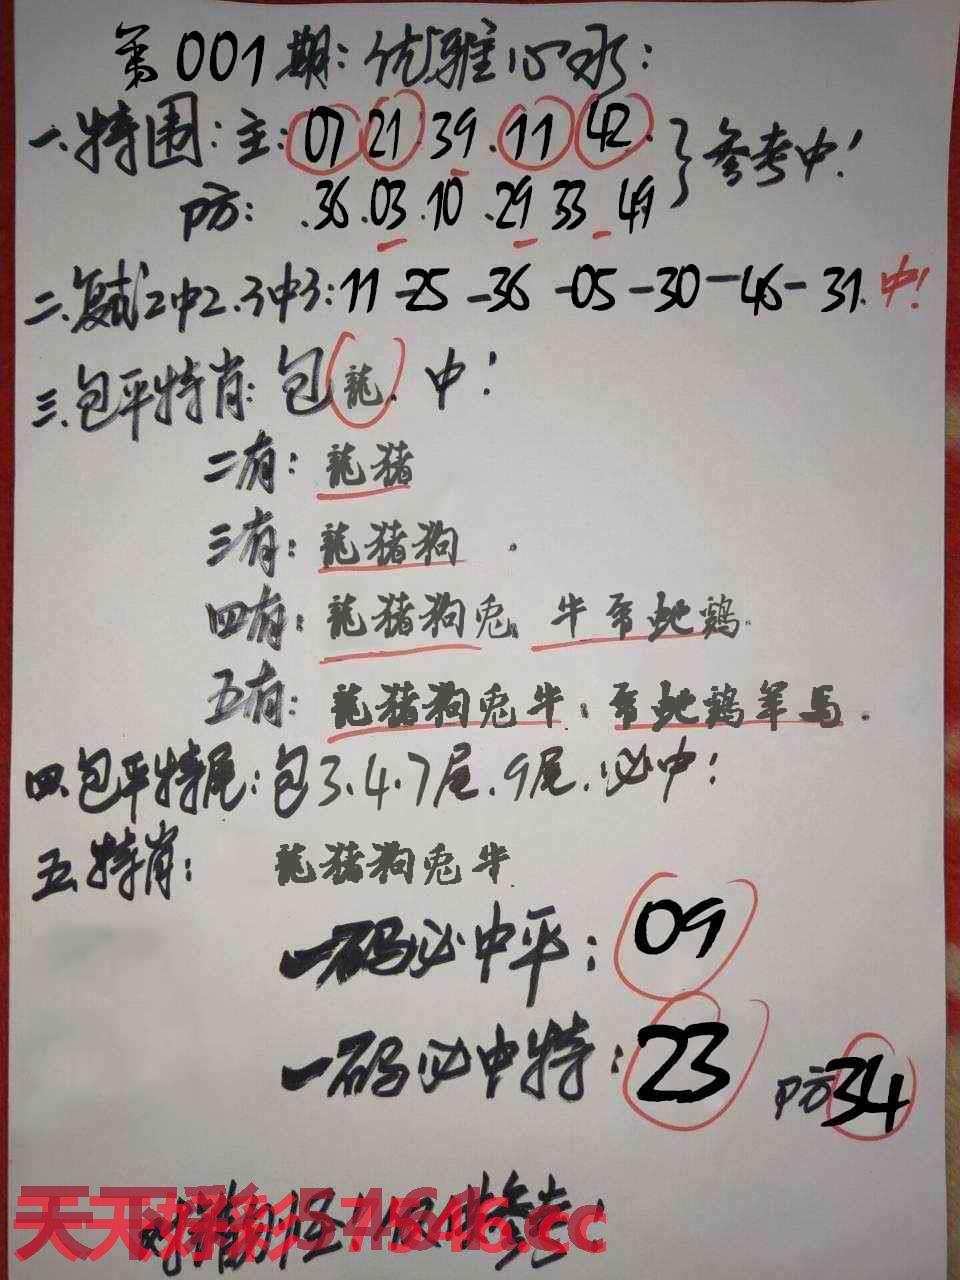 第001期:优雅心水:
一.特围:主:07 21 39.11 42. }参考中!
防:.36.03.10.29 33 49
二.复式2中2.3中3:11-25-36-05-30-46-31.中!
三.包平特肖:包龍.中!
二有:龍猪
三有:龍猪狗.
四有:龍猪狗兎.牛 蛇鶏.
五有:龍猪狗兎牛: 蛇鶏羊马.
四.包平特尾:包3.4.7尾.9尾.必中!
五.特肖:龍猪狗兎牛.
一码必中平:09
一码必中特:23 防34
天天好彩 57454b.cc